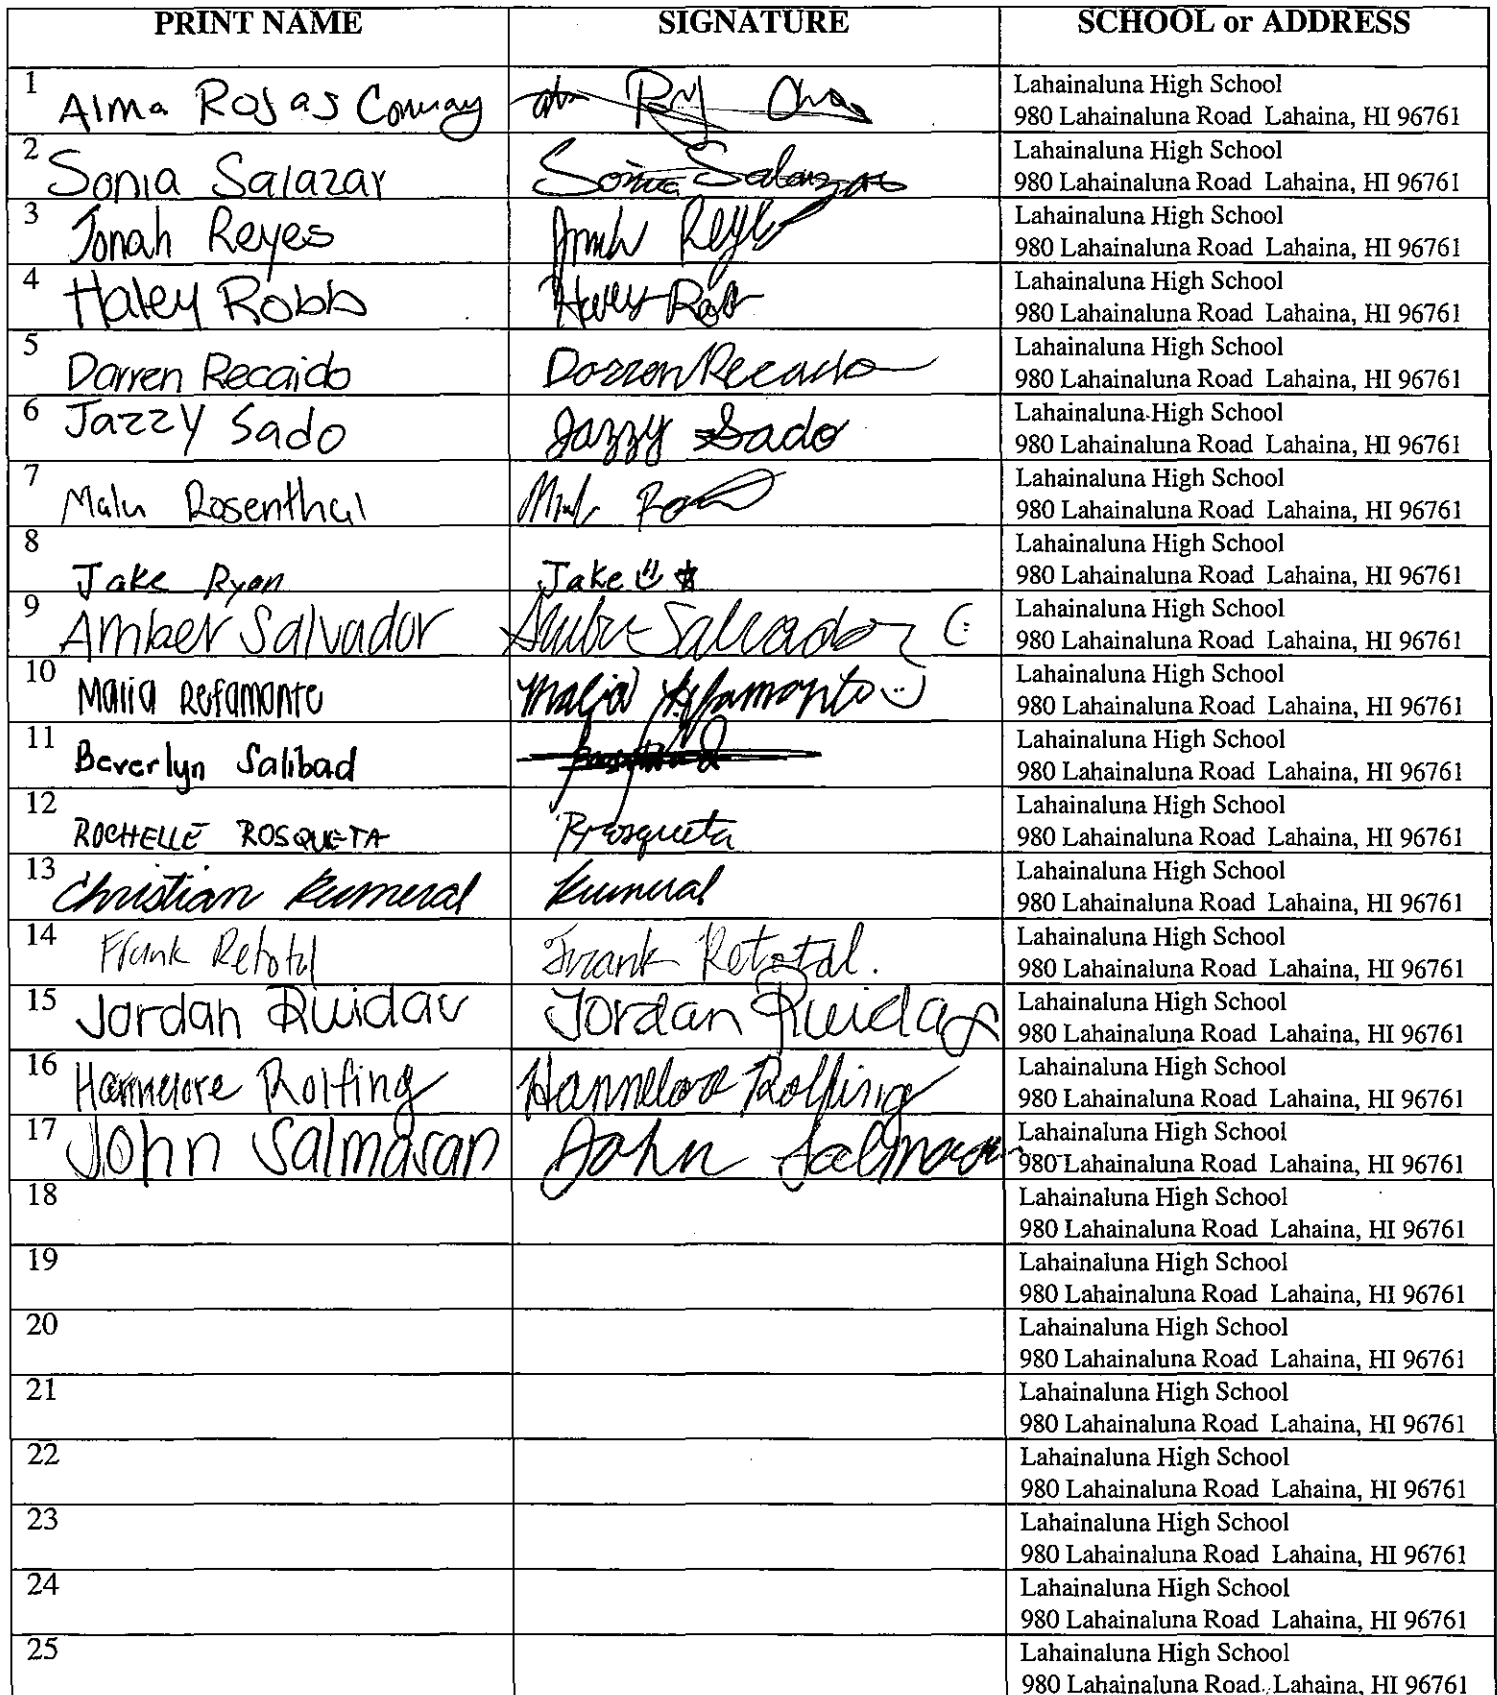 PRINT NAME SIGNATURE SCHOOL or ADDRESS
1 Alma Rojas Conway Lahainaluna High School
980 Lahainaluna Road Lahaina, HI 96761
2 Sonia Salazar Sonia Salazar Lahainaluna High School
980 Lahainaluna Road Lahaina, HI 96761
3 Jonah Reyes Jonah Reyes Lahainaluna High School
980 Lahainaluna Road Lahaina, HI 96761
4 Haley Robb Haley Robb Lahainaluna High School
980 Lahainaluna Road Lahaina, HI 96761
5 Darren Recaido Darren Recaido Lahainaluna High School
980 Lahainaluna Road Lahaina, HI 96761
6 Jazzy Sado Jazzy Sado Lahainaluna High School
980 Lahainaluna Road Lahaina, HI 96761
7 Rosenthal Lahainaluna High School
980 Lahainaluna Road Lahaina, HI 96761
8 Jake Ryan Jake Lahainaluna High School
980 Lahainaluna Road Lahaina, HI 96761
9 Amber Salvador Amber Salvador Lahainaluna High School
980 Lahainaluna Road Lahaina, HI 96761
10 Malia Refamonte Malia Refamonte Lahainaluna High School
980 Lahainaluna Road Lahaina, HI 96761
11 Beverlyn Salibad Lahainaluna High School
980 Lahainaluna Road Lahaina, HI 96761
12 ROCHELLE ROSQUETA Rrosqueta Lahainaluna High School
980 Lahainaluna Road Lahaina, HI 96761
13 Christian Rumeral Rumeral Lahainaluna High School
980 Lahainaluna Road Lahaina, HI 96761
14 Frank Retotal Frank Retotal. Lahainaluna High School
980 Lahainaluna Road Lahaina, HI 96761
15 Jordan Ruidar Jordan Ruidar Lahainaluna High School
980 Lahainaluna Road Lahaina, HI 96761
16 Hannelore Rolfing Hannelore Rolfing Lahainaluna High School
980 Lahainaluna Road Lahaina, HI 96761
17 John Salmasan John Salmasan Lahainaluna High School
980 Lahainaluna Road Lahaina, HI 96761
18 Lahainaluna High School
980 Lahainaluna Road Lahaina, HI 96761
19 Lahainaluna High School
980 Lahainaluna Road Lahaina, HI 96761
20 Lahainaluna High School
980 Lahainaluna Road Lahaina, HI 96761
21 Lahainaluna High School
980 Lahainaluna Road Lahaina, HI 96761
22 Lahainaluna High School
980 Lahainaluna Road Lahaina, HI 96761
23 Lahainaluna High School
980 Lahainaluna Road Lahaina, HI 96761
24 Lahainaluna High School
980 Lahainaluna Road Lahaina, HI 96761
25 Lahainaluna High School
980 Lahainaluna Road Lahaina, HI 96761